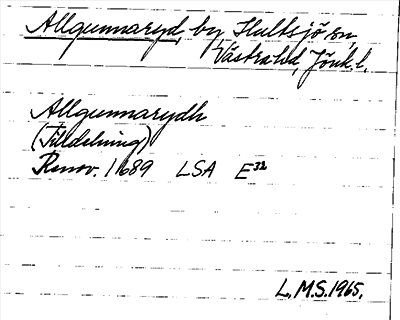 Allgunnaryd, by Hultsjö sn,
Västra hd, Jönk. l.
Allgunnarydh
(Tilldelning)
Renov. 1689 LSA E32
L.M.S. 1965.